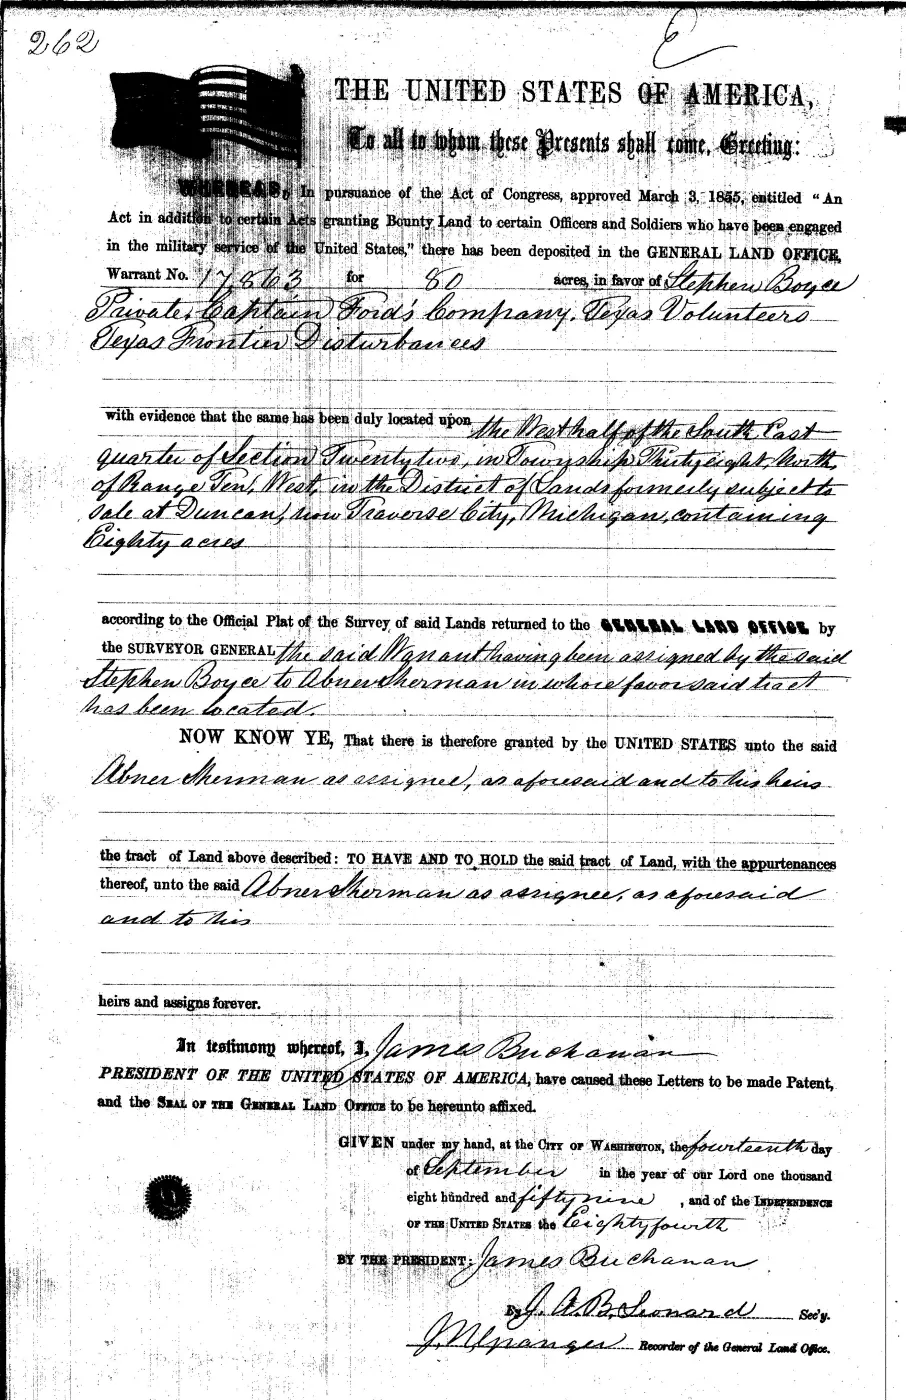 262
E
THE UNITED STATES OF AMERICA,
To all to whom these Presents shall come, Greeting:
WHEREAS, In pursuance of the Act of Congress, approved March 3, 1855, entitled "An
Act in addition to certain Acts granting Bounty Land to certain Officers and Soldiers who have been engaged
in the military service of the United States," there has been deposited in the GENERAL LAND OFFICE,
Warrant No. 17,863 for 80 acres, in favor of Stephen Boyce
Private, Captain Ford's Company, Texas Volunteers
Texas Frontier Disturbances
with evidence that the same has been duly located upon the West half of the South East
quarter of Section Twenty two, in Township Thirty eight, North,
of Range Ten, West, in the District of Lands formerly subject to
sale at Duncan, now Traverse City, Michigan, containing
Eighty acres
according to the Official Plat of the Survey of said Lands returned to the GENERAL LAND OFFICE by
the SURVEYOR GENERAL the said Warrant having been assigned by the said
Stephen Boyce to Abner Sherman in whose favor said tract
has been located.
NOW KNOW YE, That there is therefore granted by the UNITED STATES unto the said
Abner Sherman as assignee, as aforesaid and to his heirs
the tract of Land above described: TO HAVE AND TO HOLD the said tract of Land, with the appurtenances
thereof, unto the said Abner Sherman as assignee, as aforesaid
and to his
heirs and assigns forever.
In testimony whereof, I, James Buchanan
PRESIDENT OF THE UNITED STATES OF AMERICA, have caused these Letters to be made Patent,
and the SEAL OF THE GENERAL LAND OFFICE to be hereunto affixed.
GIVEN under my hand, at the CITY OF WASHINGTON, the fourteenth day
of September in the year of our Lord one thousand
eight hundred and fifty nine, and of the INDEPENDENCE
OF THE UNITED STATES the Eighty fourth
BY THE PRESIDENT: James Buchanan
By J. A. B. Leonard Sec'y.
J. N. Granger Recorder of the General Land Office.